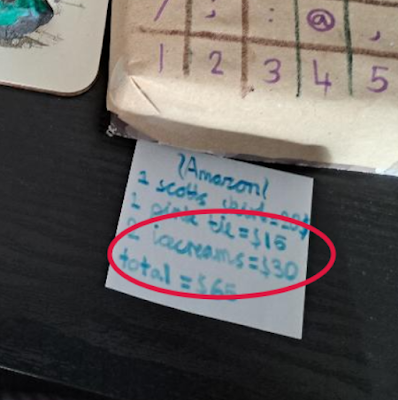 / ; : @ ,
1 2 3 4 5
(Amazon(
1 scotts shirt=20$
1 pink tie=$15
2 icecreams=$30
total=$65